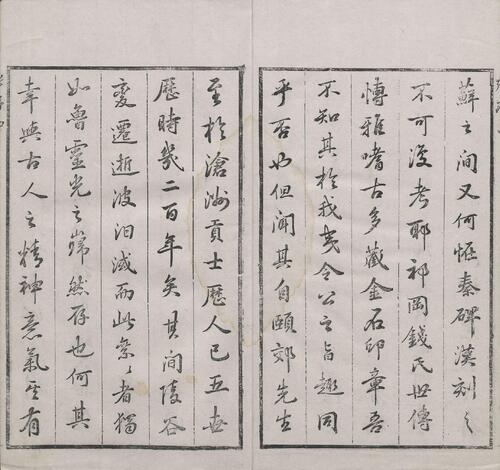 蘚之間又何怪秦碑漢刻之
不可復考耶祁岡錢氏世傳
博雅嗜古多藏金石印章吾
不知其於我叟令公之旨趣同
乎否也但聞其自頤郊先生
至於滄洲貢士歷人已五世
歷時幾二百年矣其間陵谷
變遷逝波汨滅而此纍纍者獨
如魯靈光之巋然存也何其
幸與古人之精神意氣必有